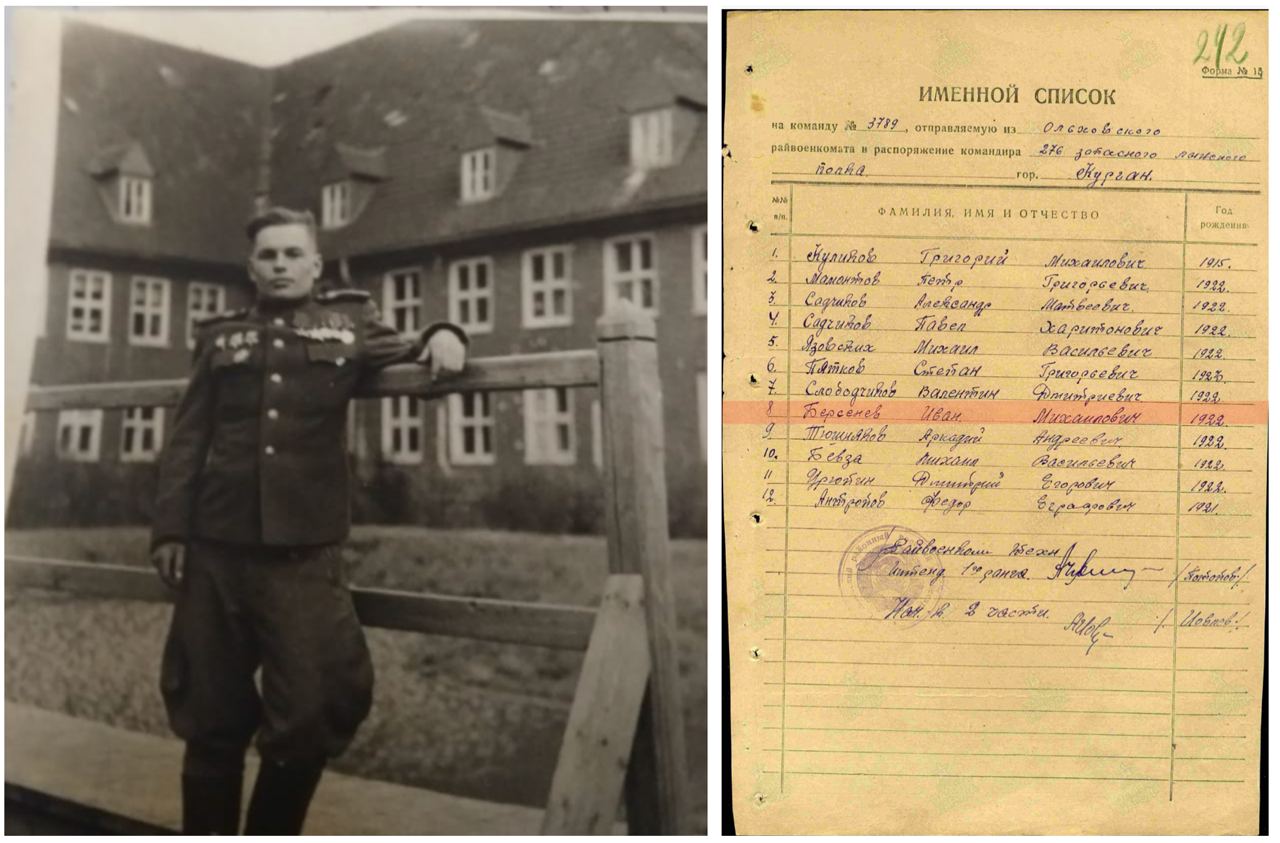 242
Форма № 15
ИМЕННОЙ СПИСОК
на команду № 3789, отправляемую из Ольховского
райвоенкомата в распоряжение командира 276 запасного лыжного
полка гор. Курган.
№№ п/п. ФАМИЛИЯ, ИМЯ И ОТЧЕСТВО Год рождения
1. Куликов Григорий Михаилович 1915.
2. Мамонтов Петр Григорьевич 1922
3. Садчиков Александр Матвеевич 1922
4. Садчиков Павел Харитонович 1922
5. Язовских Михаил Васильевич 1922
6. Пятков Степан Григорьевич
7. Слободчиков Валентин Дмитриевич 1922
8 Берсенев Иван Михаилович 1922
9. Аркадий Андреевич 1922
10. Бевза Михаил Васильевич 1922
11 Урютин Дмитрий Егорович 1922
12. Антропов Федор 1921
Райвоенком техн
интенд 1го ранга
Нач. 2 части.